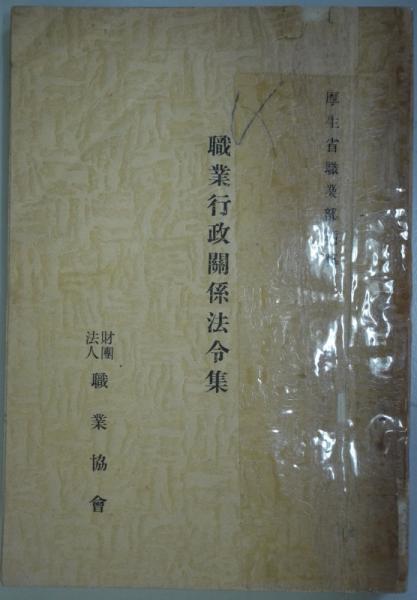 厚生省職業部
職業行政關係法令集
財團法人 職業協會